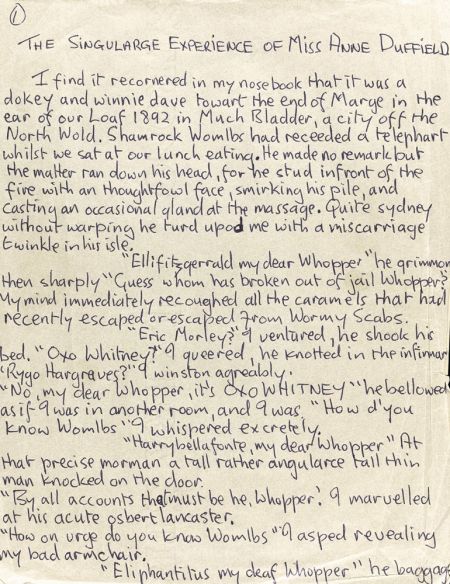 ①
THE SINGULARGE EXPERIENCE OF MISS ANNE DUFFIELD
I find it recornered in my nosebook that it was a
dokey and winnie dave towart the end of Marge in the
ear of our Loaf 1892 in Much Bladder, a city off the
North Wold. Shamrock Womlbs had receeded a telephart
whilst we sat at our lunch eating. He made no remark but
the matter ran down his head, for he stud infront of the
fire with an thoughtfowl face, smirking his pile, and
casting an occasional gland at the massage. Quite sydney
without warping he turd upod me with a miscarriage
twinkle in his isle.
"Ellifitzgerrald my dear Whopper" he grimmon
then sharply "Guess whom has broken out of jail Whopper?
My mind immediately recoughed all the caramels that had
recently escaped or escaped from Wormy Scabs.
"Eric Morley?" I ventured, he shook his
bed. "Oxo Whitney?" I queered, he knotted in the infirmar
'Rygo Hargraves?" I winston agreably.
"No, my dear Whopper, it's OXO WHITNEY" he bellowed
as if I was in another room, and I was. "How d'you
know Womlbs" I whispered excretely.
"Harrybellafonte, my dear Whopper" At
that precise morman a tall rather angularce tall thin
man knocked on the door.
"By all accounts that must be he, Whopper.' I marvelled
at his acute osbert lancaster.
"How on urge do you know Womlbs" I asped revealing
my bad armchair.
"Eliphantitus my deaf Whopper" he baggage